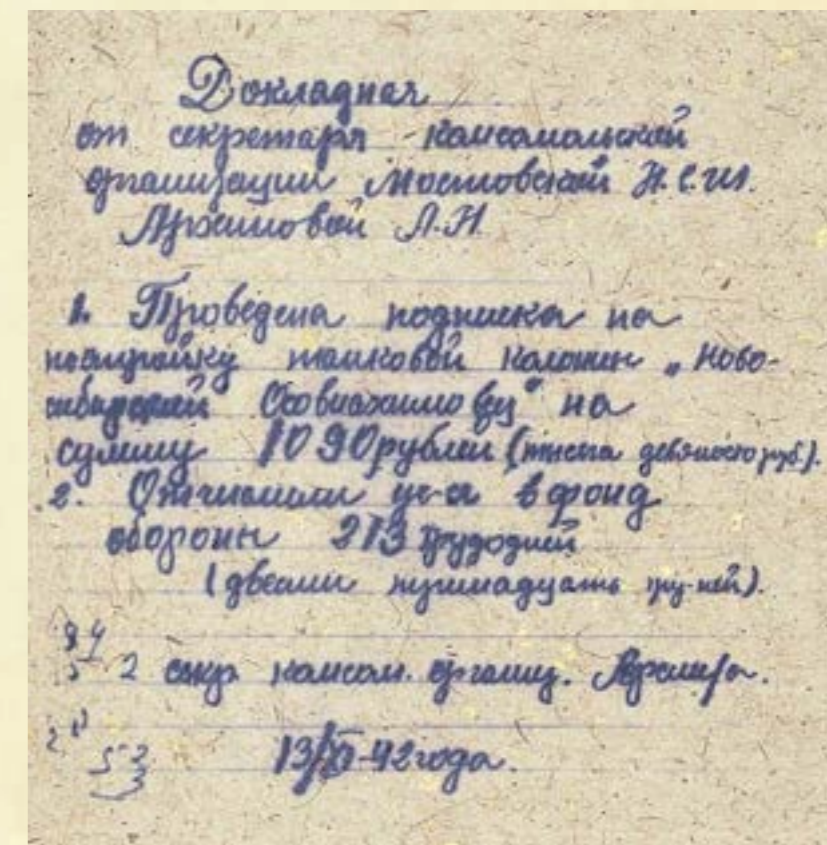 Докладная
от секретаря комсомольской
организации Мостовской Н.С.Ш.
Архиповой Л.Н.
1. Проведена подписка на
постройку танковой колонны „Ново-
сибирский Осовиахимовец" на
сумму 1090 рублей (тысяча девяносто руб.).
2. Отчислили уч-ся в фонд
обороны 213 трудодней
(двести тринадцать тру-ней).
84
5 2 секр. комсом. организ.
2
53
3
13/XI-42 года.